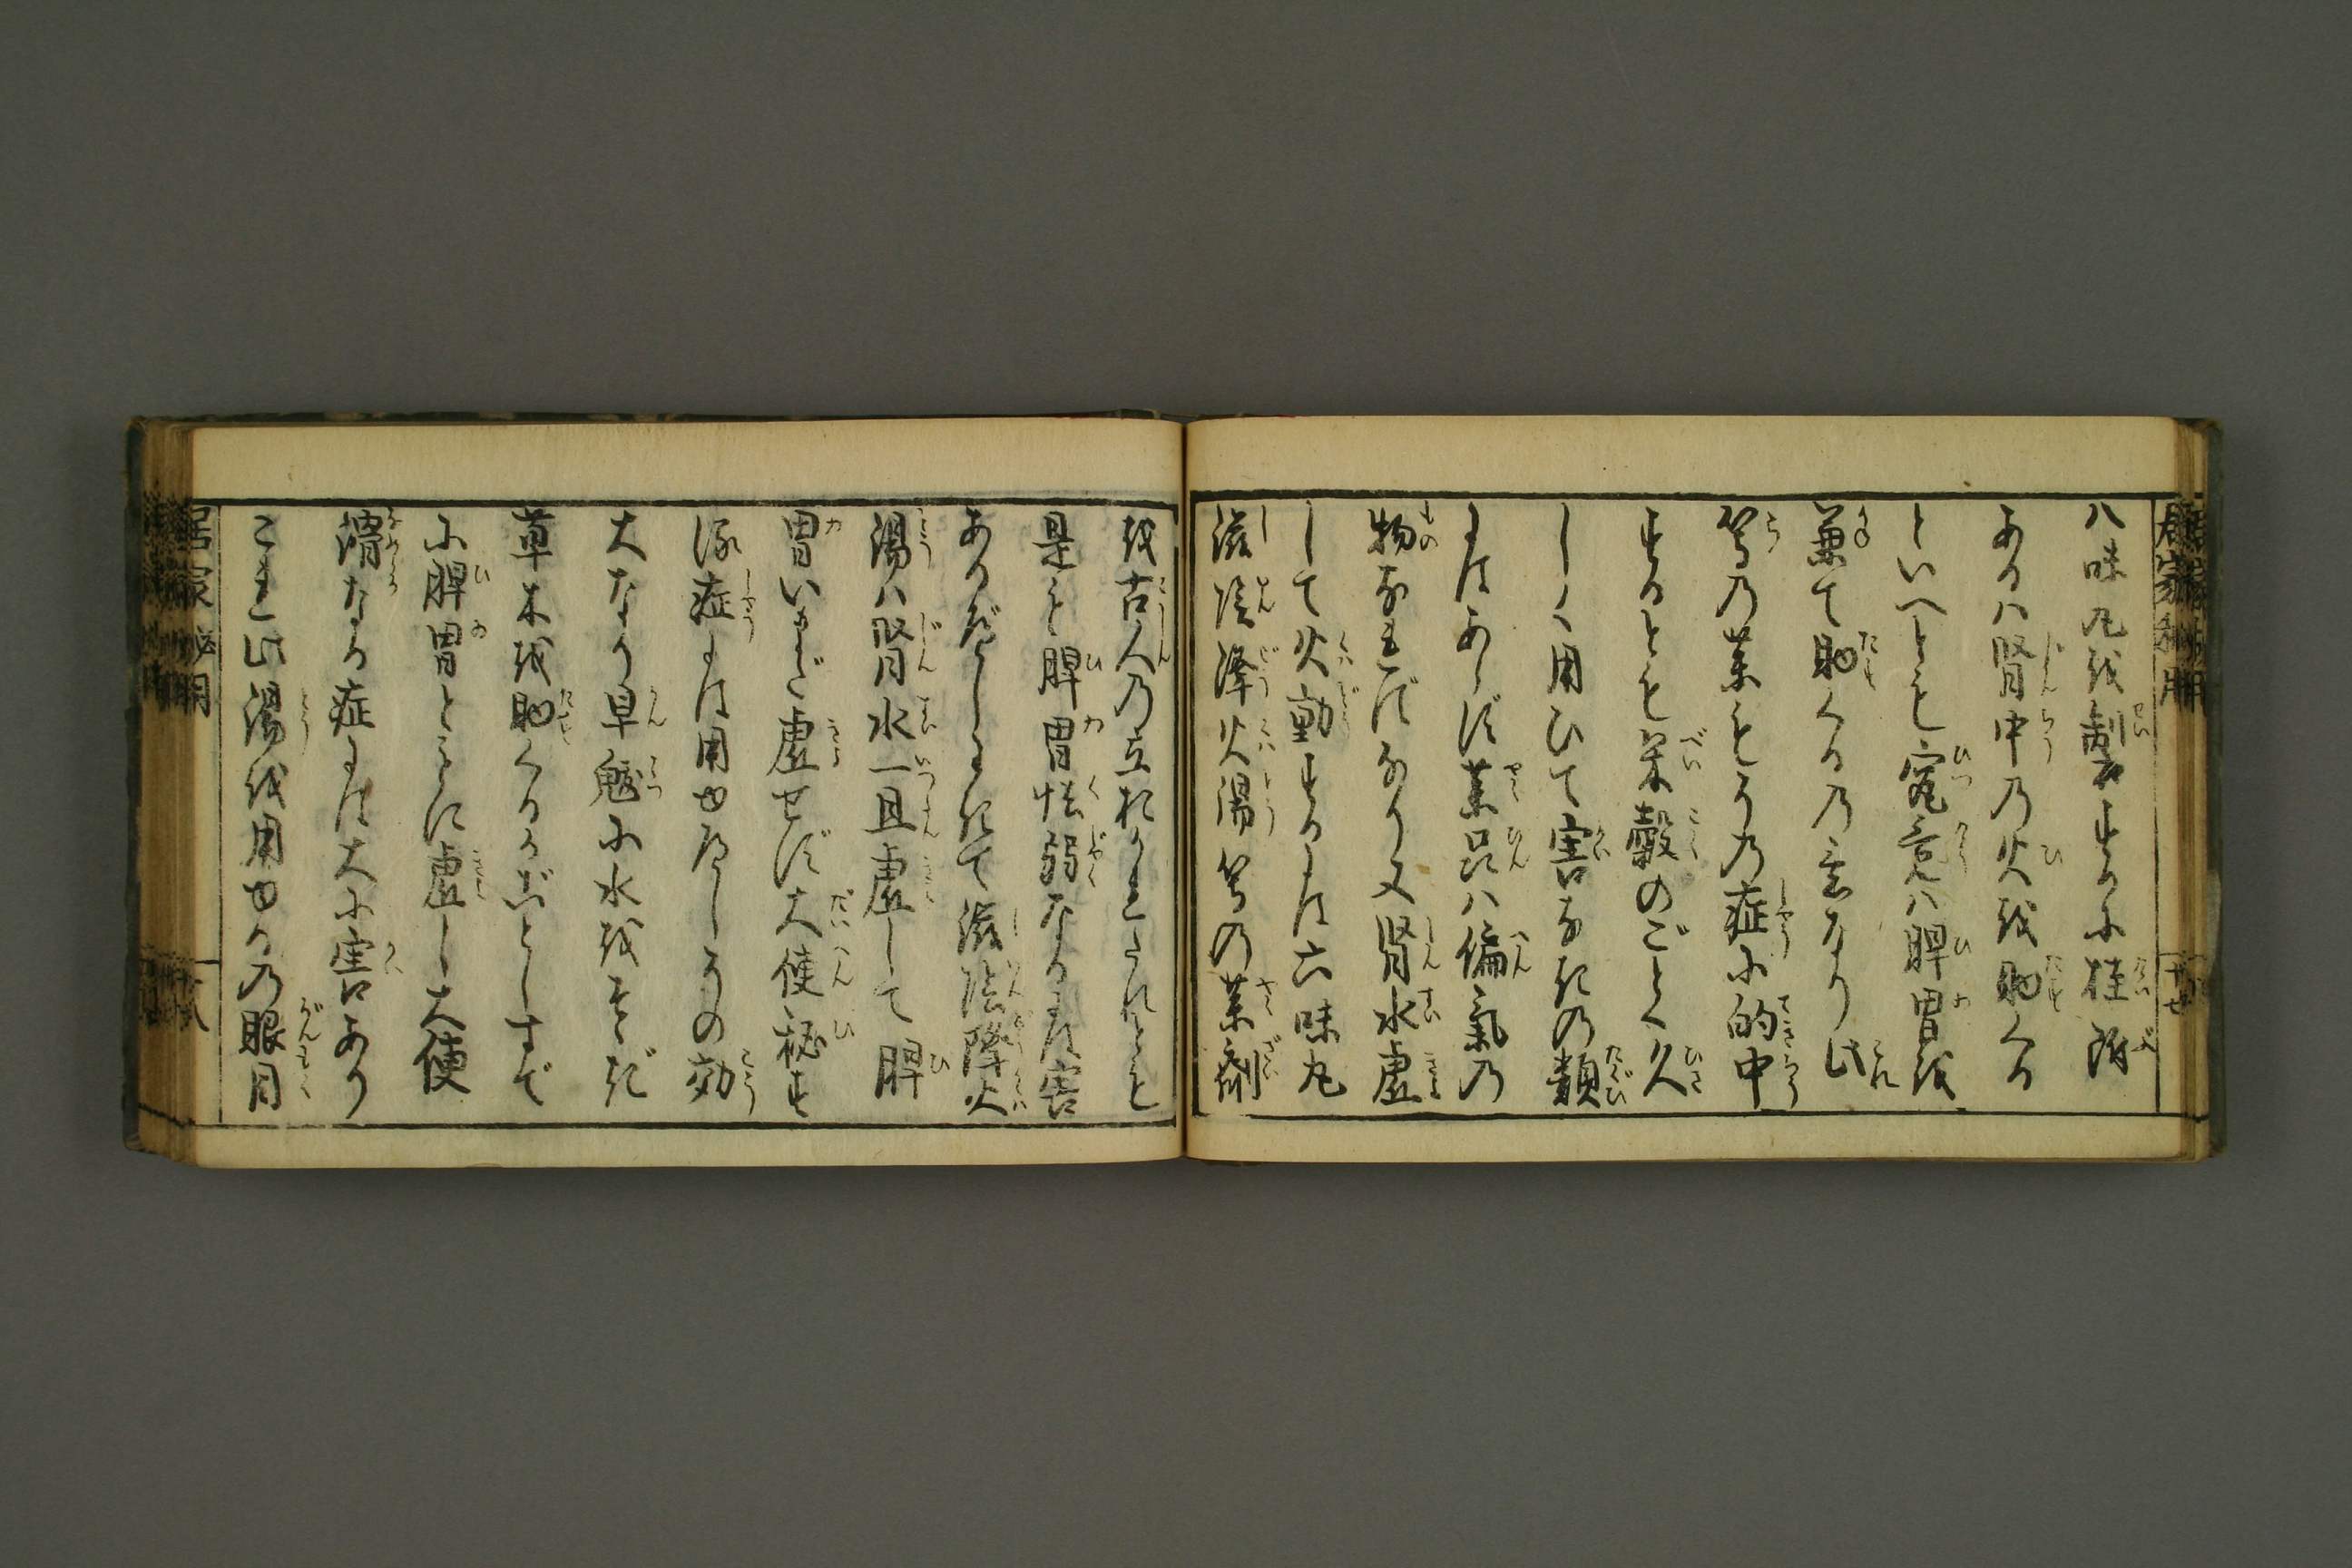 八味丸を製するに桂附
あるハ腎中の火を助くる
といへども寔竟ハ脾胃を
兼て助くるの意なり此
等の薬もその症に的中
するとも米穀のごとく久
しく用ひて害なきの類
にはあらず薬品ハ偏氣の
物なれバなり又腎水虚
して火動するには六味丸
滋陰降火湯等の薬剤
を古人の立おかれたれども
是も脾胃怯弱なるには害
あるべしまして滋陰降火
湯ハ腎水一旦虚して脾
胃いまだ虚せず大便秘す
る症には用ゆべしその効
大なり旱魃に水をそゝぎ
草木を助くるがごとしすで
に脾胃ともに虚し大便
滑なる症には大に害あり
これ此湯を用ゆるの眼目
居家必用